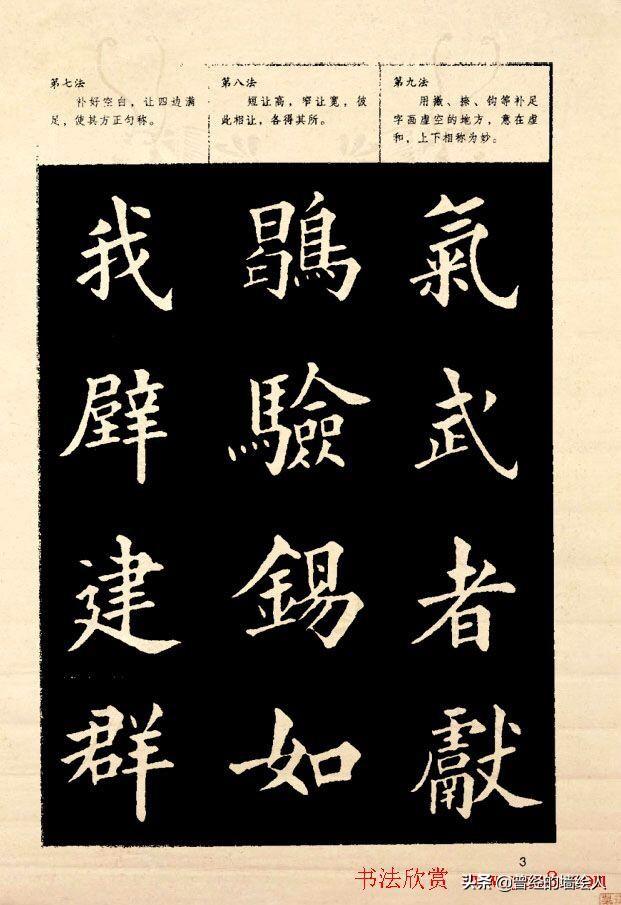 第七法
补好空白，让四边满
足，使其方正匀称。
我
辟
建
群
第八法
短让高，窄让宽，彼
此相让，各得其所。
驗
錫
如
第九法
用撇、捺、钩等补足
字画虚空的地方，意在虚
和，上下相称为妙。
氣
武
者
獻
3
书法欣赏
头条 @曾经的墙绘人